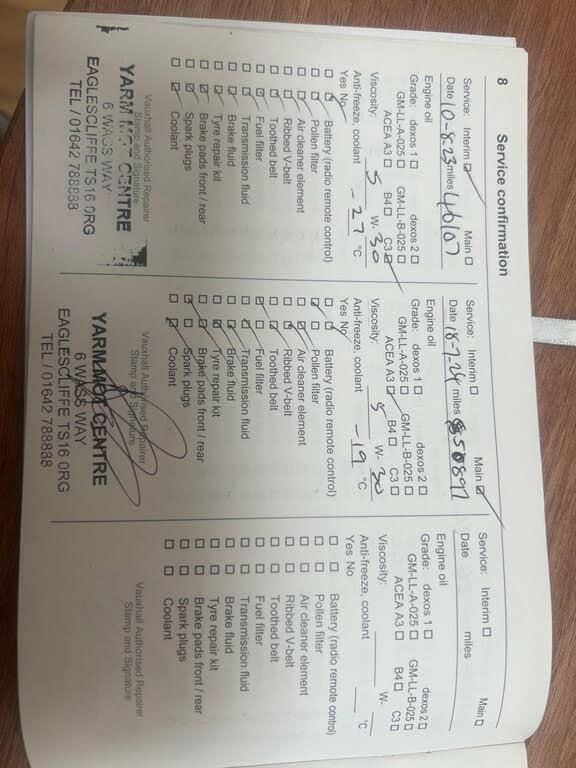 8 Service confirmation
Service: Interim ☑ Main ☐
Date 10-8-23 miles 46107
Engine oil
Grade: dexos 1 ☐ dexos 2 ☐
GM-LL-A-025 ☐ GM-LL-B-025 ☐
ACEA A3 ☐ B4 ☐ C3 ☑
Viscosity: 5 W- 30
Anti-freeze, coolant -27 °C
Yes No
Battery (radio remote control)
Pollen filter
Air cleaner element
Ribbed V-belt
Toothed belt
Fuel filter
Transmission fluid
Brake fluid
Tyre repair kit
Brake pads front / rear
Spark plugs
Coolant
Vauxhall Authorised Repairer
Stamp and Signature
YARM MOT CENTRE
6 WASS WAY
EAGLESCLIFFE TS16 0RG
TEL / 01642 788838
Service: Interim ☐ Main ☑
Date 18-7-24 miles 50897
Engine oil
Grade: dexos 1 ☐ dexos 2 ☐
GM-LL-A-025 ☐ GM-LL-B-025 ☐
ACEA A3 ☑ B4 ☐ C3 ☐
Viscosity: 5 W- 30
Anti-freeze, coolant -19 °C
Yes No
Battery (radio remote control)
Pollen filter
Air cleaner element
Ribbed V-belt
Toothed belt
Fuel filter
Transmission fluid
Brake fluid
Tyre repair kit
Brake pads front / rear
Spark plugs
Coolant
Vauxhall Authorised Repairer
Stamp and Signature
YARM MOT CENTRE
6 WASS WAY
EAGLESCLIFFE TS16 0RG
TEL / 01642 788838
Service: Interim ☐ Main ☐
Date miles
Engine oil
Grade: dexos 1 ☐ dexos 2 ☐
GM-LL-A-025 ☐ GM-LL-B-025 ☐
ACEA A3 ☐ B4 ☐ C3 ☐
Viscosity: W-
Anti-freeze, coolant °C
Yes No
Battery (radio remote control)
Pollen filter
Air cleaner element
Ribbed V-belt
Toothed belt
Fuel filter
Transmission fluid
Brake fluid
Tyre repair kit
Brake pads front / rear
Spark plugs
Coolant
Vauxhall Authorised Repairer
Stamp and Signature